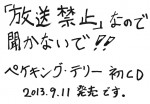 「放送禁止」なので
聞かないで!!
ペケキング・テリー 初CD
2013.9.11 発売です。